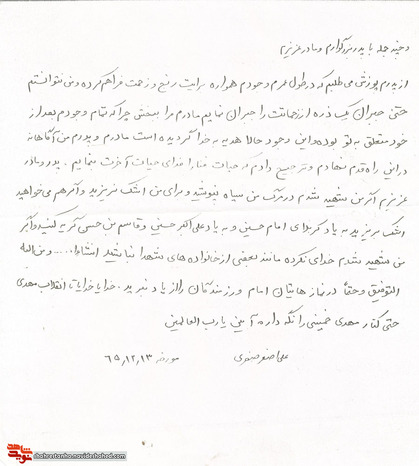 و چند جمله با پدر بزرگوارم و مادر عزیزم
از پدرم پوزش می طلبم که در طول عمرم وجودم همواره برایت رنج و زحمت فراهم کرده و من نتوانستم
حتی جبران یک ذره از زحمات را جبران نمایم مادرم مرا ببخش چرا که تمام وجودم بعد از
خود متعلق به تو بوده و این وجود حالا هدیه به خدا گردیده است مادرم و پدرم من آگاهانه
در این راه قدم نهادم و ترجیح دادم که حیات فنا را فدای حیات آخرت نمایم . پدر و مادر
عزیزم اگر من شهید شدم در مرگ من سیاه نپوشید و برای من اشک نریزید و اگر هم می خواهید
اشک بریزید به یاد کربلای امام حسین و به یاد علی اکبر حسین و قاسم بن حسن گریه کنید و اگر
من شهید شدم خدای نکرده مانند بعضی از خانواده های شهدا نباشید انشاءا..... و من الله
التوفیق و حتماً در نمازهایتان امام و رزمندگان را از یاد نبرید . خدایا خدایا تا انقلاب مهدی
حتی کنار مهدی خمینی را نگه دار آمین یا رب العالمین
علی اصغر صفوی
مورخه ۶۵,۱۲,۱۳
نوید شاهد
shahrestanha.navideshahed.com